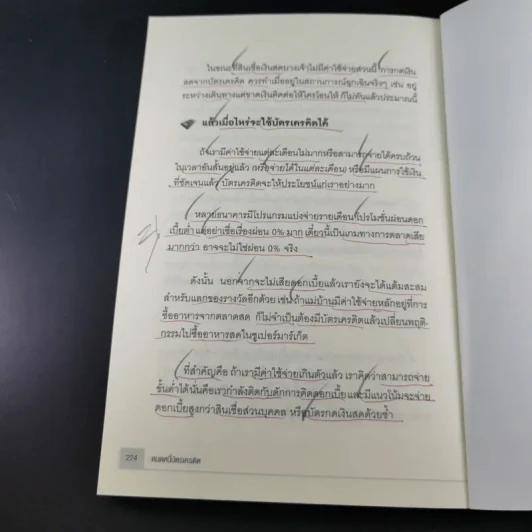 ในขณะที่สินเชื่อเงินสดบางเจ้าไม่มีค่าใช้จ่ายส่วนนี้ การกดเงิน
สดจากบัตรเครดิต ควรทำเมื่ออยู่ในสถานการณ์ฉุกเฉินจริงๆ เช่น อยู่
ระหว่างเดินทางแต่ขาดเงินติดต่อให้ใครโอนให้ ก็ไม่ทันแล้วประมาณนี้
แล้วเมื่อไหร่จะใช้บัตรเครดิตได้
ถ้าเรามีค่าใช้จ่ายแต่ละเดือนไม่มากหรือสามารถจ่ายได้ครบถ้วน
ในเวลาอันสั้นอยู่แล้ว (หรือจ่ายได้ในแต่ละเดือน) หรือมีแผนการใช้เงิน
ที่ชัดเจนแล้ว บัตรเครดิตจะให้ประโยชน์แก่เราอย่างมาก
หลายธนาคารมีโปรแกรมแบ่งจ่ายรายเดือน โปรโมชั่นผ่อนดอก
เบี้ยต่ำ แต่อย่าเชื่อเรื่องผ่อน 0% มาก เดี๋ยวนี้เป็นเกมทางการตลาดเสีย
มากกว่า อาจจะไม่ใช่ผ่อน 0% จริง
ดังนั้น นอกจากจะไม่เสียดอกเบี้ยแล้วเรายังจะได้แต้มสะสม
สำหรับแลกของรางวัลอีกด้วย เช่น ถ้าแม่บ้านมีค่าใช้จ่ายหลักอยู่ที่การ
ซื้ออาหารจากตลาดสด ก็ไม่จำเป็นต้องมีบัตรเครดิตแล้วเปลี่ยนพฤติ-
กรรมไปซื้ออาหารสดในซูเปอร์มาร์เก็ต
ที่สำคัญคือ ถ้าเรามีค่าใช้จ่ายเกินตัวแล้ว เราคิดว่าสามารถจ่าย
ขั้นต่ำได้นั่นคือเรากำลังติดกับดักการคิดดอกเบี้ยและมีแนวโน้มจะจ่าย
ดอกเบี้ยสูงกว่าสินเชื่อส่วนบุคคล หรือบัตรกดเงินสดด้วยซ้ำ
224 หมดหนี้บัตรเครดิต